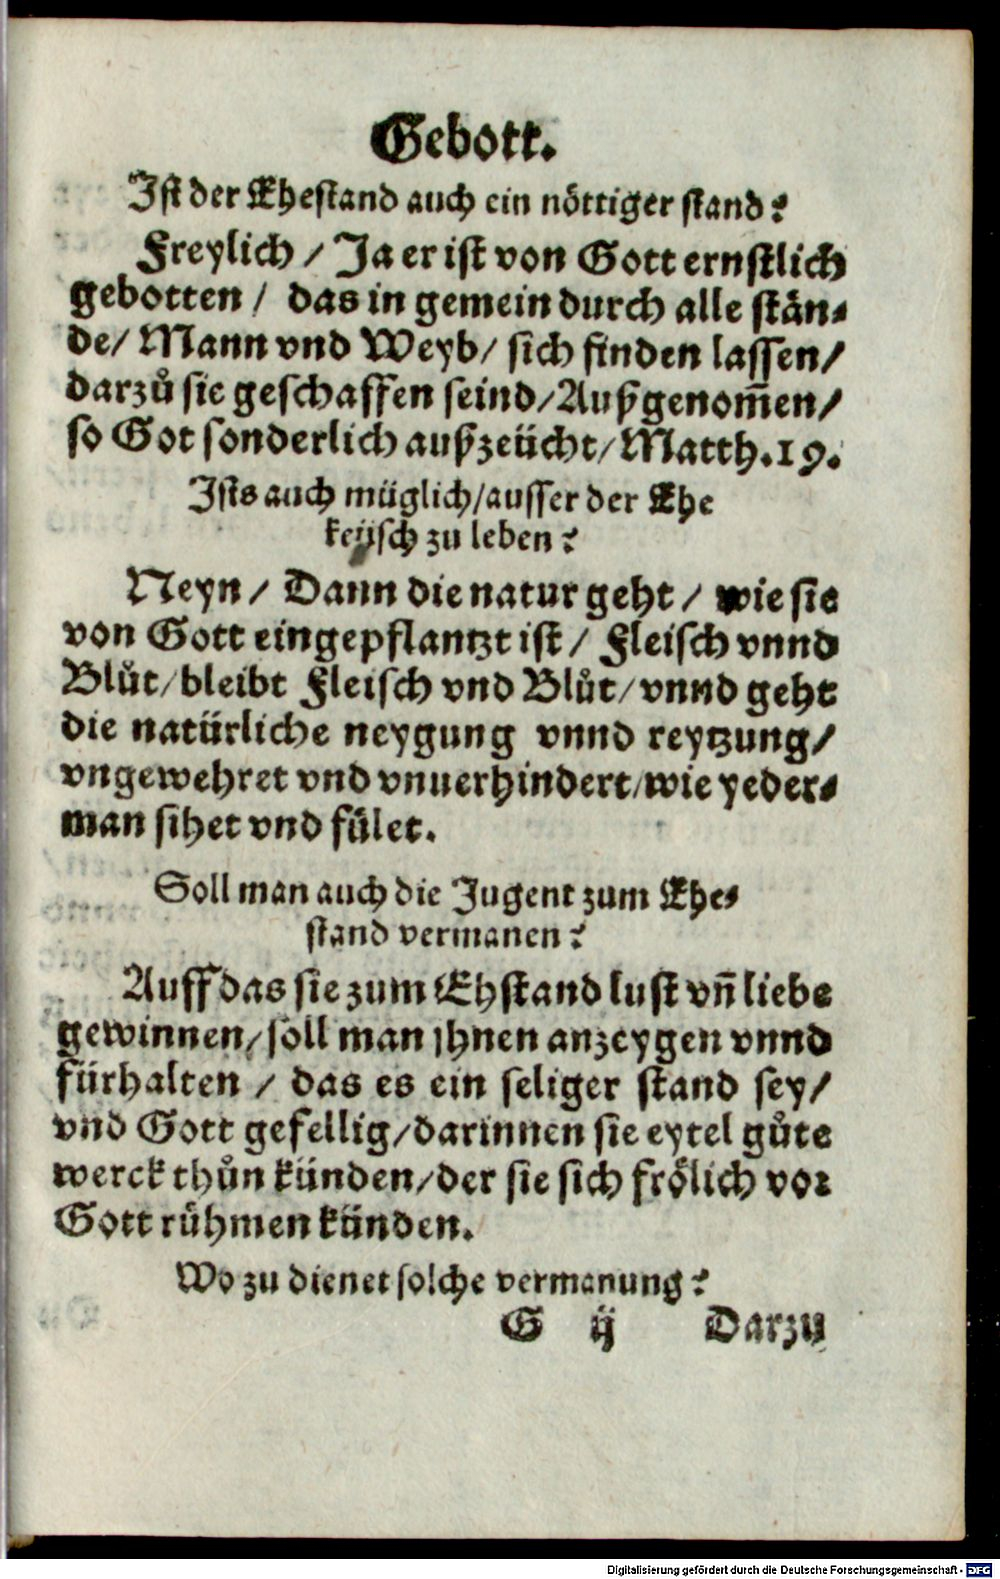 Gebott.
Ist der Ehestand auch ein nöttiger stand?
Freylich / Ja er ist von Gott ernstlich
gebotten / das in gemein durch alle stän⸗
de/ Mann vnd Weyb/ sich finden lassen/
darzů sie geschaffen seind/Außgenom̄en/
so Got sonderlich außzeücht/Matth.19.
Ists auch müglich/ausser der Ehe
keüsch zu leben?
Neyn / Dann die natur geht / wie sie
von Gott eingepflantzt ist / Fleisch vnnd
Blůt/bleibt Fleisch vnd Blůt/vnnd geht
die natürliche neygung vnnd reytzung/
vngewehret vnd vnuerhindert/wie yeder⸗
man sihet vnd fület.
Soll man auch die Jugent zum Ehe⸗
stand vermanen?
Auff das sie zum Ehstand lust vn̄ liebe
gewinnen/soll man jhnen anzeygen vnnd
fürhalten / das es ein seliger stand sey/
vnd Gott gefellig/darinnen sie eytel gůte
werck thůn künden/der sie sich frölich vor
Gott rühmen künden.
Wo zu dienet solche vermanung?
G ij Darzu
Digitalisierung gefördert durch die Deutsche Forschungsgemeinschaft - DFG